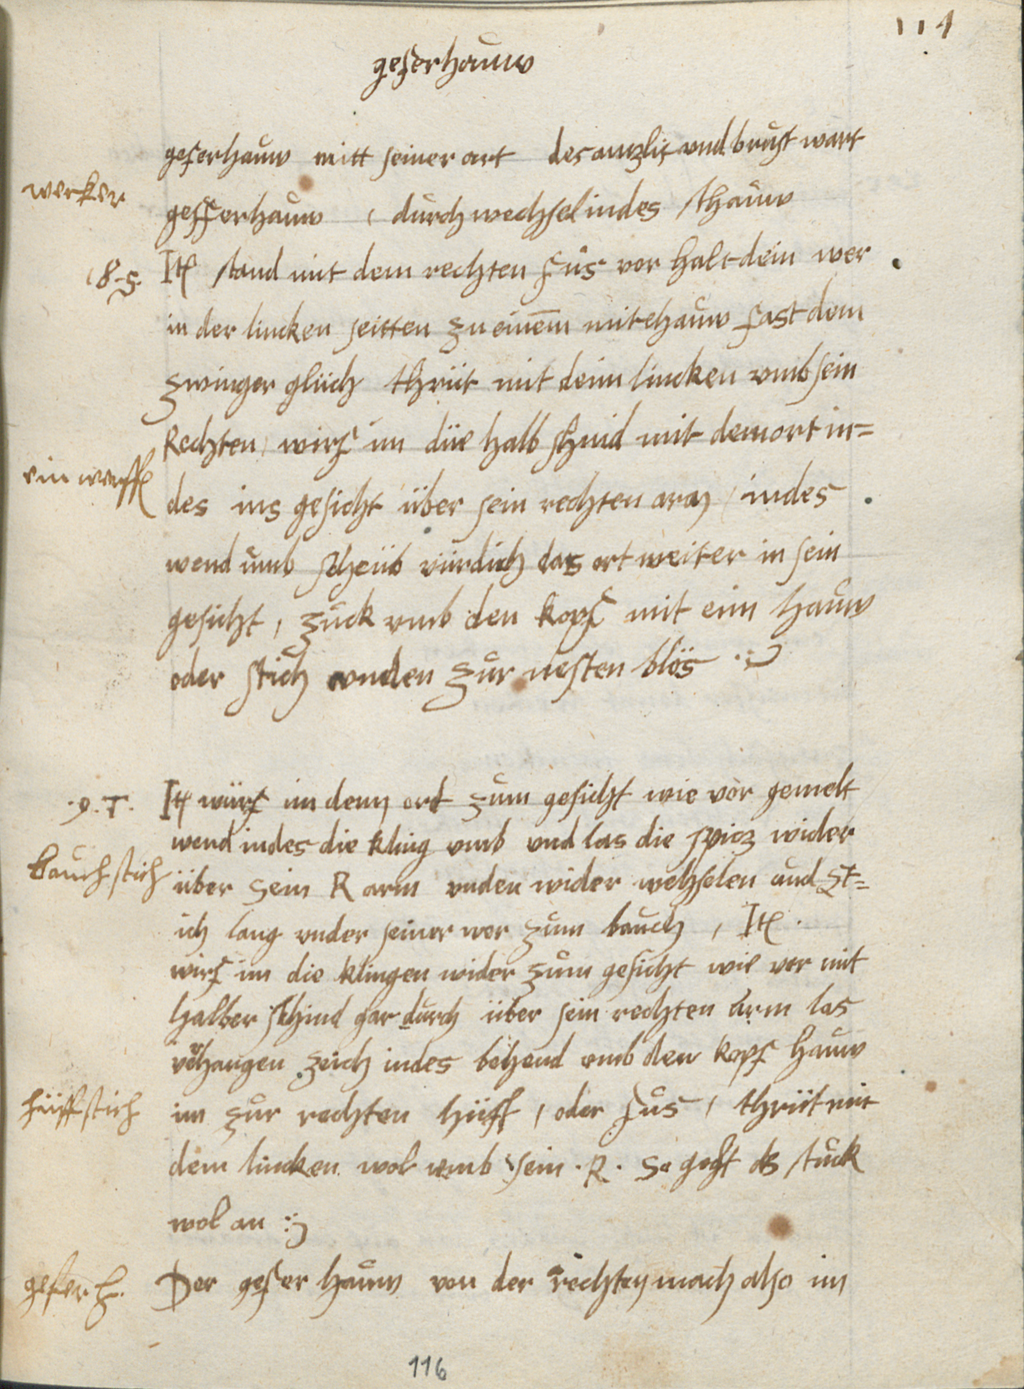 114
geferhauw
geferhauw mitt seiner art des anzlit und brust wart
werker
gefferhauw , durchwechsel indes thauw
18.S. Itē stand mit dem rechten fůs vor halt dein wer
in der lincken seitten zu einem mitelhauw fast dem
zwinger glüch thrüt mit deim lincken umb sein
Rechten, wirf im die halb schnid mit dem ort in=
ein werffē
des ins gesicht über sein rechten arm, indes
wend umb scheüb vürdich das ort weiter in sein
gesicht, zuck umb den kopf mit eim hauw
oder stich unden zůr nesten blös
.9.T. Itē würf im denn ort zum gesicht wie vor gemelt
wend indes die kling umb und las die spicz wider
bauchstich
über sein R arm unden wider wechslen aund st=
ich lang under seiner wer zum bauch, Itē.
wirf im die klingen wider zům gesicht wie vor mit
halber schnid gar durch über sein rechten arm las
verhangen zeich indes behend umb den kopf hauw
hüffstich
im zůr rechten hüff, oder fůs, thrüt mit
dem lincken wol umb sein .R. so geht ds stuck
wol an
gefer h.
Der gefer hauw von der rechten mach also im
116